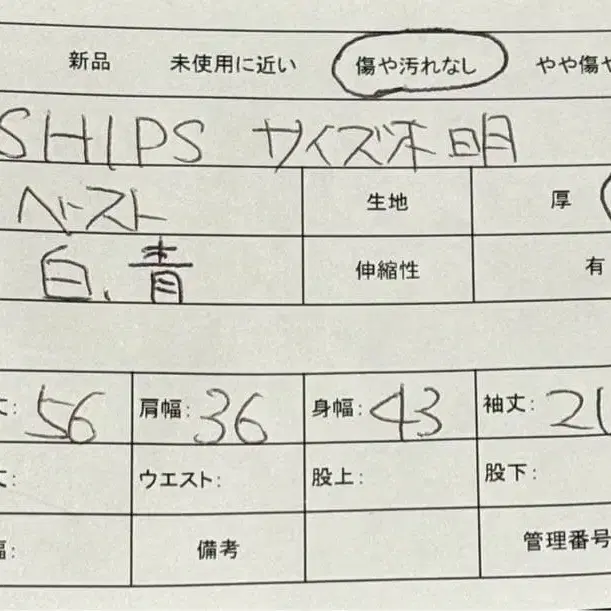 新品 未使用に近い 傷や汚れなし やや傷や
SHIPS サイズ不明
ベスト 生地 厚
白、青 伸縮性 有
丈: 56 肩幅: 36 身幅: 43 袖丈: 2
丈: ウエスト: 股上: 股下:
幅: 備考 管理番号